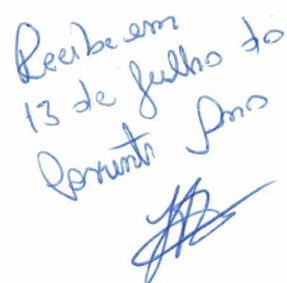 Recibe em
13 de Julho do
Corrente Ano